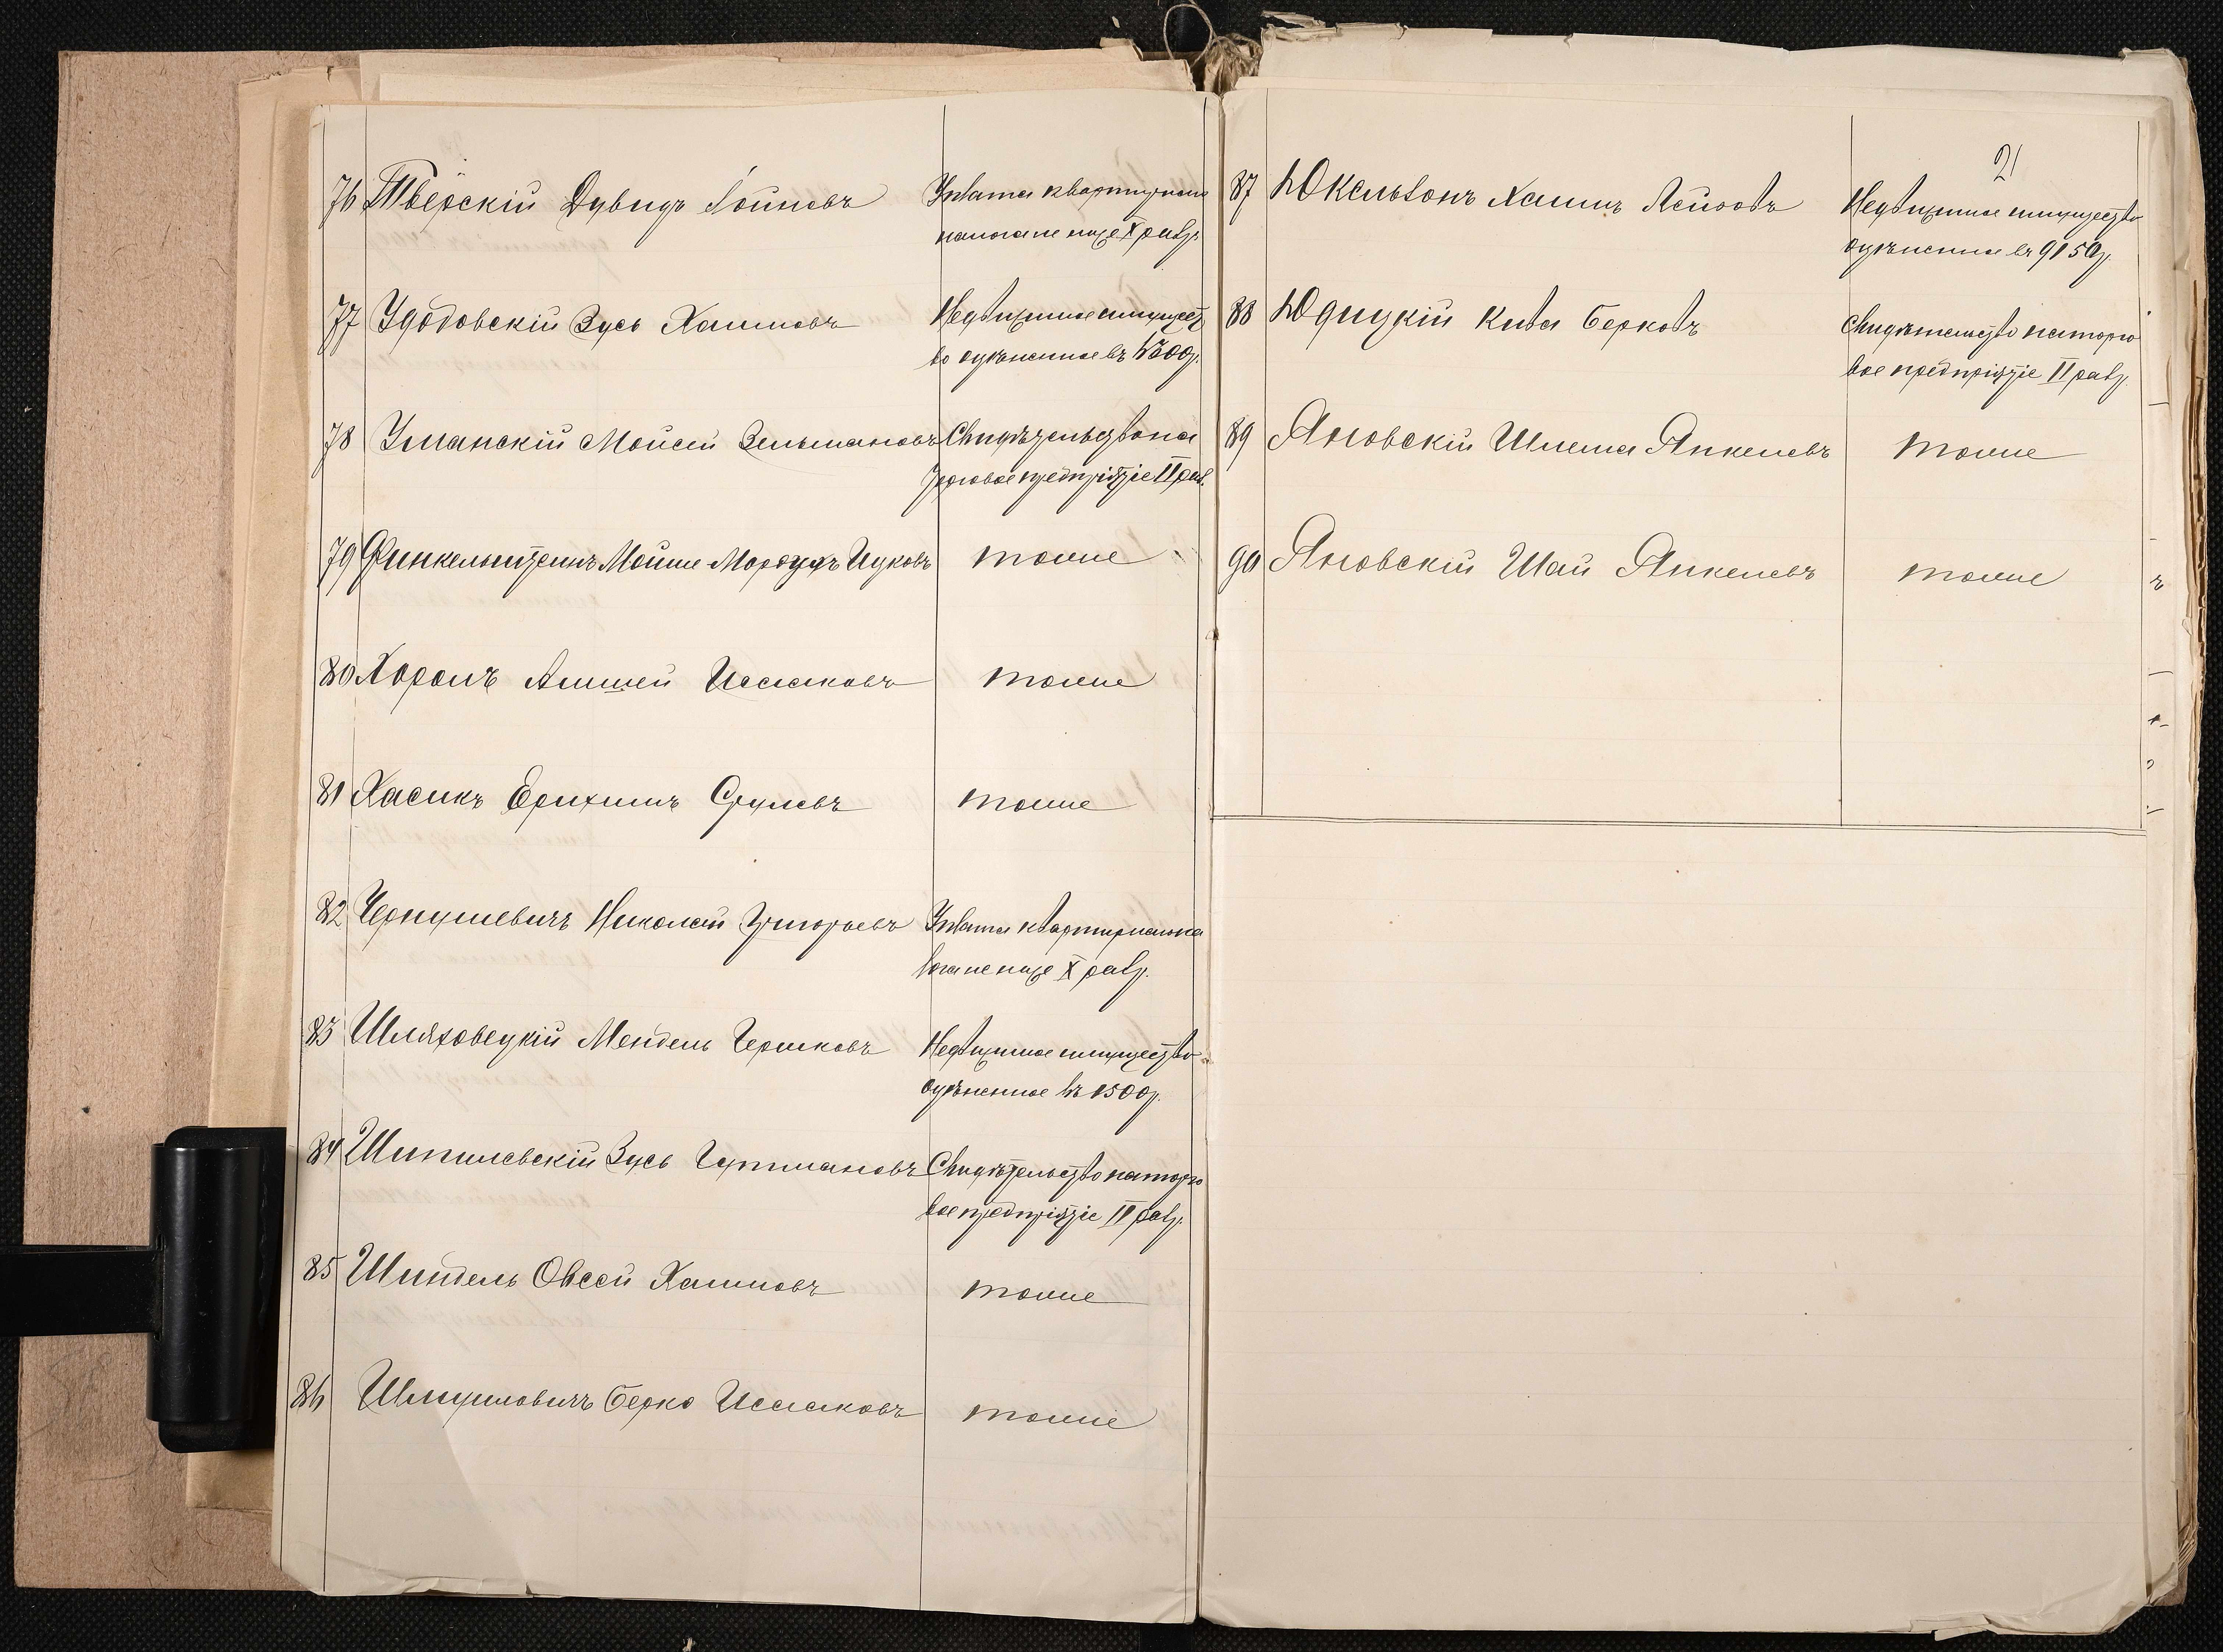 76 Тверскій Дувидъ Іойновъ Уплата квартирнаго
налога не ниже X разр.
77 Удодовскій Зусь Хаимовъ Недвижимое имущест
во оцѣненное въ 1300р.
78 Уманскій Мойсей Зельмановъ Свидѣтельство на
торговое предпріятіе II раз.
79 Финкельштейнъ Мойше-Мордухъ Ицковъ тоже
80 Хоролъ Аншей Исааковъ тоже
81 Хасикъ Ерихимъ Срулевъ тоже
82 Чернушевичъ Николай Григорьевъ Уплата квартирнаго на
лога не ниже X разр.
83 Шляховецкій Мендель Гершковъ Недвижимое имущество
оцѣненное въ 1500р.
84 Шипилевскій Зусь Гутмановъ Свидѣтельство на торго
вое предпріятіе II разр.
85 Шиндель Овсей Хаимовъ тоже
86 Шмуиловичъ Берко Исааковъ тоже
21
87 Юкельзонъ Хаимъ Лейзовъ Недвижимое имущество
оцѣненное въ 9150р.
88 Юдицкій Кива Берковъ Свидѣтельство на торго
вое предпріятіе II разр.
89 Яновскій Шлема Янкелевъ тоже
90 Яновскій Шай Янкелевъ тоже